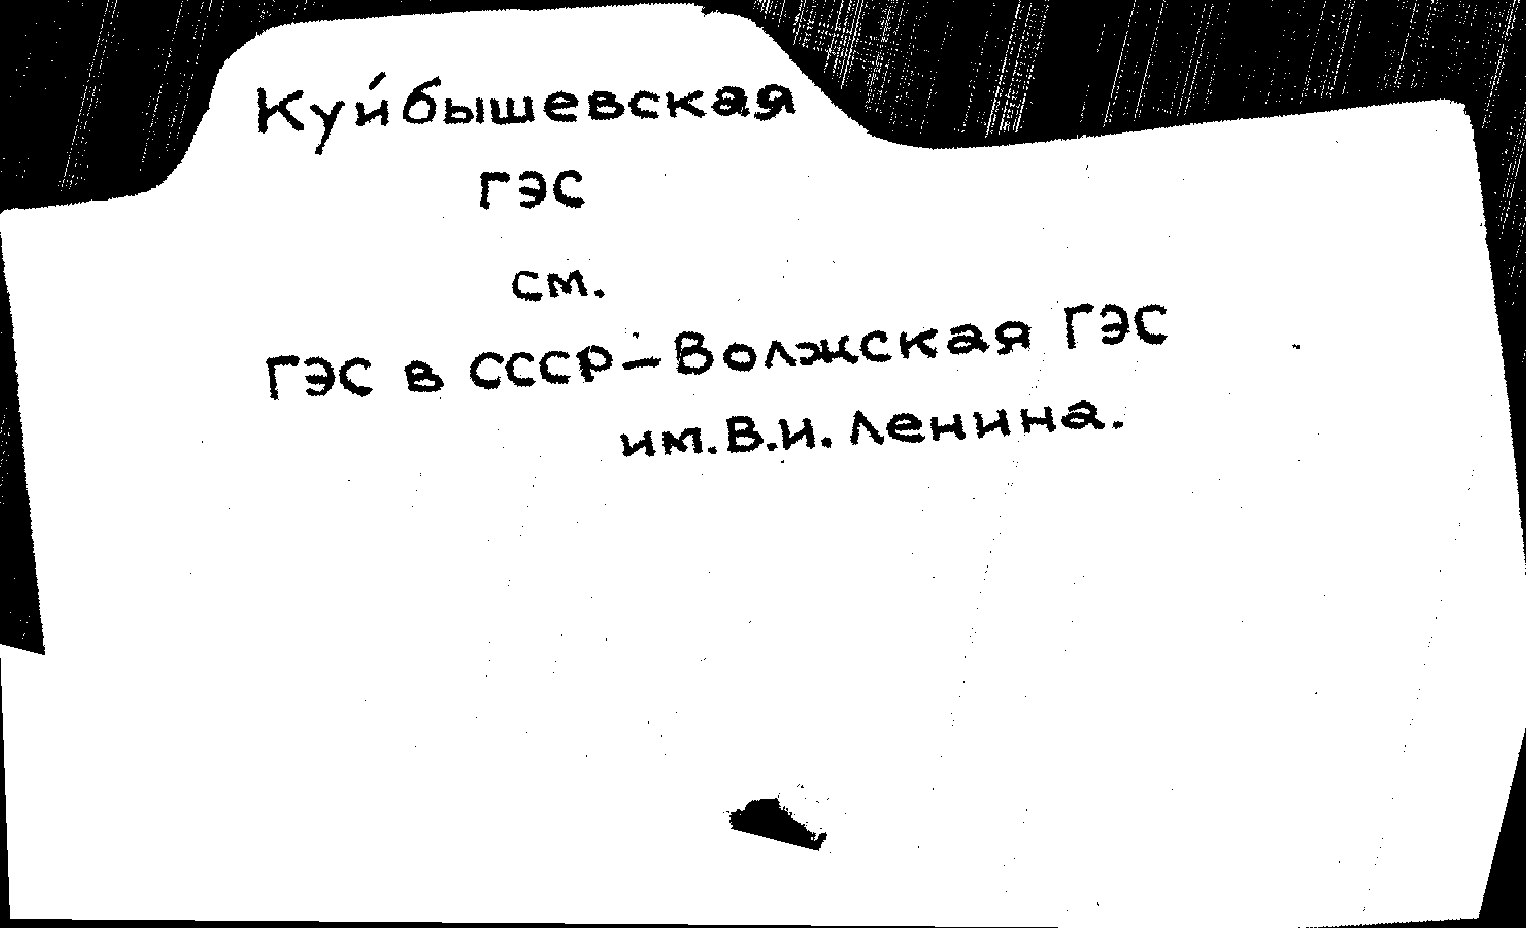 Куйбышевская
ГЭС
см.
ГЭС в СССР – Волжская ГЭС
им. В.И. Ленина.